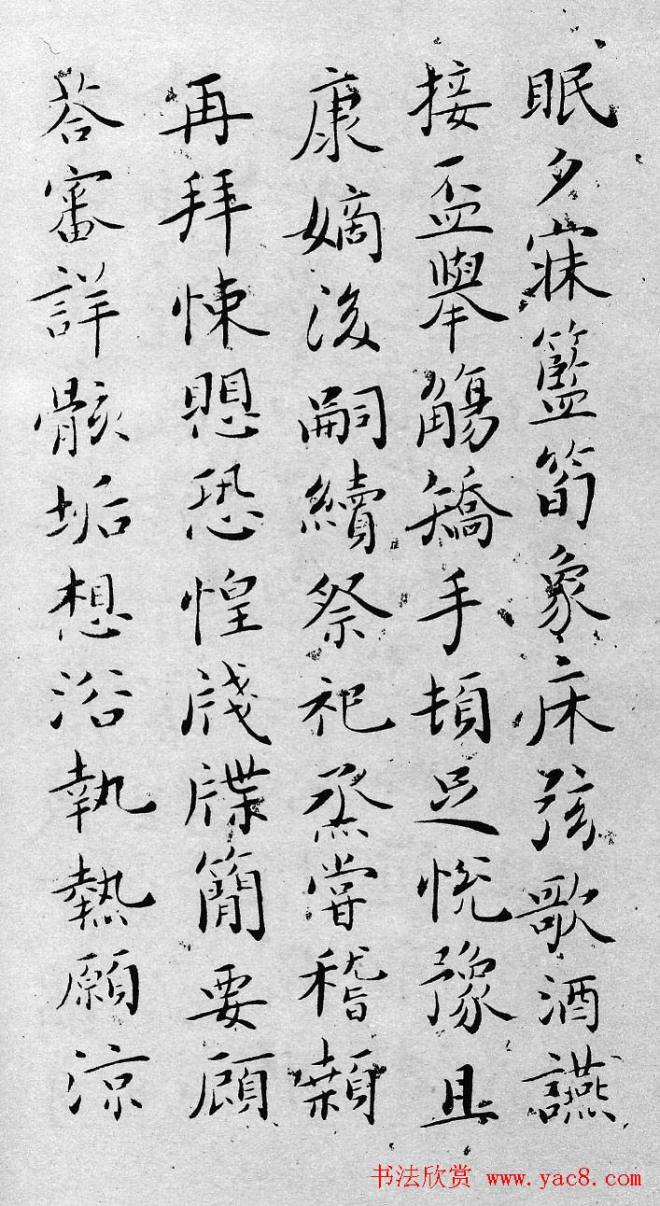 眠夕寐籃笱象床弦歌酒讌
接盃舉觴矯手頓足悅豫且
康嫡後嗣續祭祀烝嘗稽顙
再拜悚愳恐惶牋牒簡要顧
荅審詳骸垢想浴執熱願涼
书法欣赏 www.yac8.com